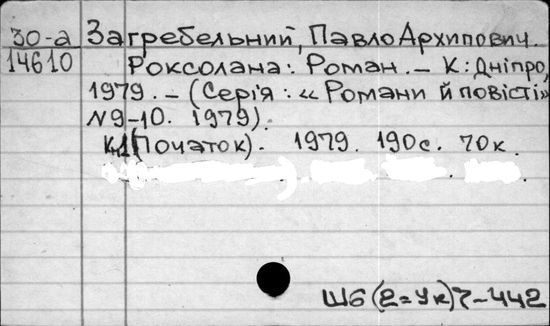 30-а Загребельний, Павло Архипович.
14610 Роксолана: Роман. – К: Дніпро,
1979. – (Серія: «Романи й повісті»
№9-10. 1979).
К.1 (Початок). 1979. 190с. 70к.
Ш6(2=Ук)7-442